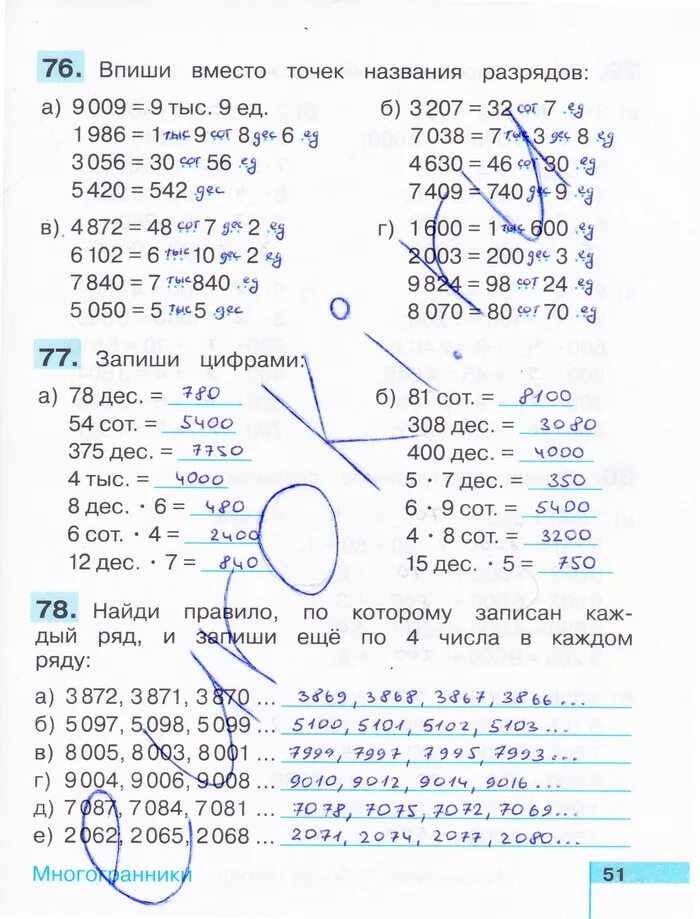 76. Впиши вместо точек названия разрядов:
а) 9 009 = 9 тыс. 9 ед.
1 986 = 1 тыс 9 сот 8 дес 6 ед
3 056 = 30 сот 56 ед
5 420 = 542 дес
б) 3 207 = 32 сот 7 ед
7 038 = 7 тыс 3 дес 8 ед
4 630 = 46 сот 30 ед
7 409 = 740 дес 9 ед
в) 4 872 = 48 сот 7 дес 2 ед
6 102 = 6 тыс 10 дес 2 ед
7 840 = 7 тыс 840 ед
5 050 = 5 тыс 5 дес
г) 1 600 = 1 тыс 600 ед
2 003 = 200 дес 3 ед
9 824 = 98 сот 24 ед
8 070 = 80 сот 70 ед
77. Запиши цифрами:
а) 78 дес. = 780
54 сот. = 5400
375 дес. = 7750
4 тыс. = 4000
8 дес. · 6 = 480
6 сот. · 4 = 2400
12 дес. · 7 = 840
б) 81 сот. = 8100
308 дес. = 3080
400 дес. = 4000
5 · 7 дес. = 350
6 · 9 сот. = 5400
4 · 8 сот. = 3200
15 дес. · 5 = 750
78. Найди правило, по которому записан каж-
дый ряд, и запиши ещё по 4 числа в каждом
ряду:
а) 3 872, 3 871, 3 870 ... 3869, 3868, 3867, 3866...
б) 5 097, 5 098, 5 099 ... 5100, 5101, 5102, 5103...
в) 8 005, 8 003, 8 001 ... 7999, 7997, 7995, 7993...
г) 9 004, 9 006, 9 008 ... 9010, 9012, 9014, 9016...
д) 7 087, 7 084, 7 081 ... 7078, 7075, 7072, 7069...
е) 2 062, 2 065, 2 068 ... 2071, 2074, 2077, 2080...
Многогранники
51